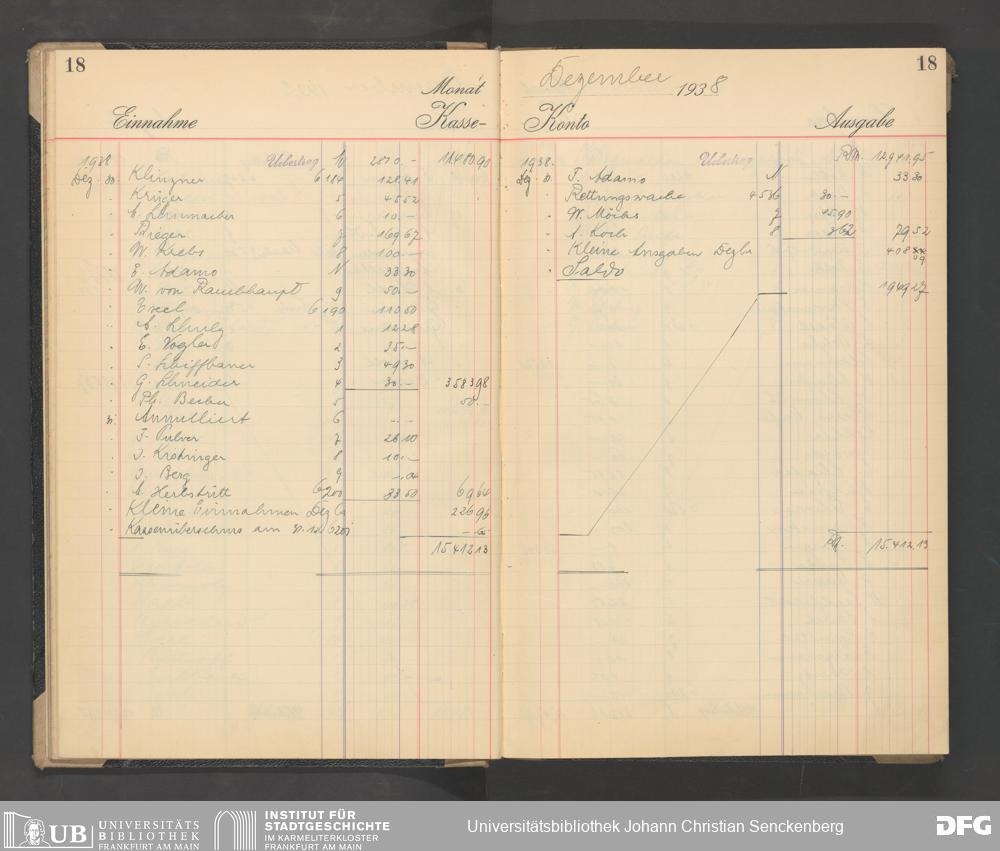 18
Monat
Einnahme Kasse-
1938 Uebertrag 2870.- 11480.90
Dez. 30. Klinzner G 184 128.41
Krüger 5 45.52
A. Schumacher 6 10.-
Brieger 7 169.67
W. Krebs 8 100.-
E. Adamo N 33.30
W. von Rauchhaupt 9 50.-
Excel G 190 110.50
1 12.28
E. Vogler 2 35.-
S. Schiffbauer 3 49.30
G. Schneider 4 30.- 3583.98
Ph. Becker 5 50.-
Annulliert 6 -.-
F. Pulver 7 26.10
8 10.-
J. Berg 9 -.04
A. Herbstritt G 200 33.50 69.64
Kleine Einnahmen Dez. 226.96
Kassenüberschuss am
15.412.13
Dezember 1938
18
Konto Ausgabe
1938. Uebertrag RM. 12.941.95
Dez. F. Adamo N 33.30
Rettungswache 4536 30.-
W. Möchs 7 45.90
A. Koch 8 3.62 79.52
Kleine Ausgaben Dezbr. 408
09
Saldo
1949.27
RM. 15.412.13
UB UNIVERSITÄTS
BIBLIOTHEK
FRANKFURT AM MAIN
INSTITUT FÜR
STADTGESCHICHTE
IM KARMELITERKLOSTER
FRANKFURT AM MAIN
Universitätsbibliothek Johann Christian Senckenberg
DFG